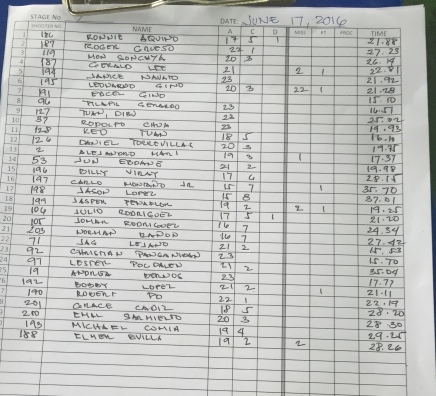 STAGE No. DATE JUNE 17, 2016
SHOOTER NO. NAME A C D MISS PT PROC TIME
1 186 RONNIE AQUINO 17 5 1 21.88
2 187 ROGER 27 1 27.23
3 119 MON SONCHYA 20 3 26.19
4 187 GERALD LEE 21 2 1 22.81
5 194 JANICE NAVATO 23 21.92
6 195 LEONARDO GINO 20 3 22 1 21.28
7 191 EDCEL GINO 15.10
8 96 GERARDO 23 16.51
9 127 TUAN, DIEU 23 25.02
10 57 RODOLFO CHUA 23 19.93
11 128 KEO TUAN 18 5
12 126 DANIEL TORREVILLAS 20 3 19.75
13 2 ALEJANDRO 19 3 1 17.37
14 53 JUN EDDANE 21 2 19.98
15 196 BILLY VIRAY 17 6 28.15
16 197 CARLO MONTANO JR 15 7 1 35.70
17 198 JASON LOPEZ 15 8 37.01
18 199 JASPER PENAFLOR 19 2 2 1 19.25
19 104 JULIO RODRIGUEZ 17 5 1 21.20
20 105 JOMAR RODRIGUEZ 16 7 24.34
21 203 NORMAN 16 7 27.42
22 71 JAG LEJANO 21 2 15.53
23 92 CHRISTIAN PANGANIBAN 23 15.70
24 97 LESTER 21 2 35.04
25 19 ANDREA 23 17.77
26 192 BOBBY LOPEZ 21 2 1 21.11
190 ROBERT PO 22 1 22.19
201 GRACE CADIZ 18 5 28.20
200 EMIL SARMIENTO 20 3 28.30
193 MICHAEL COMIA 19 4 29.25
188 ELMER 19 2 2 28.26